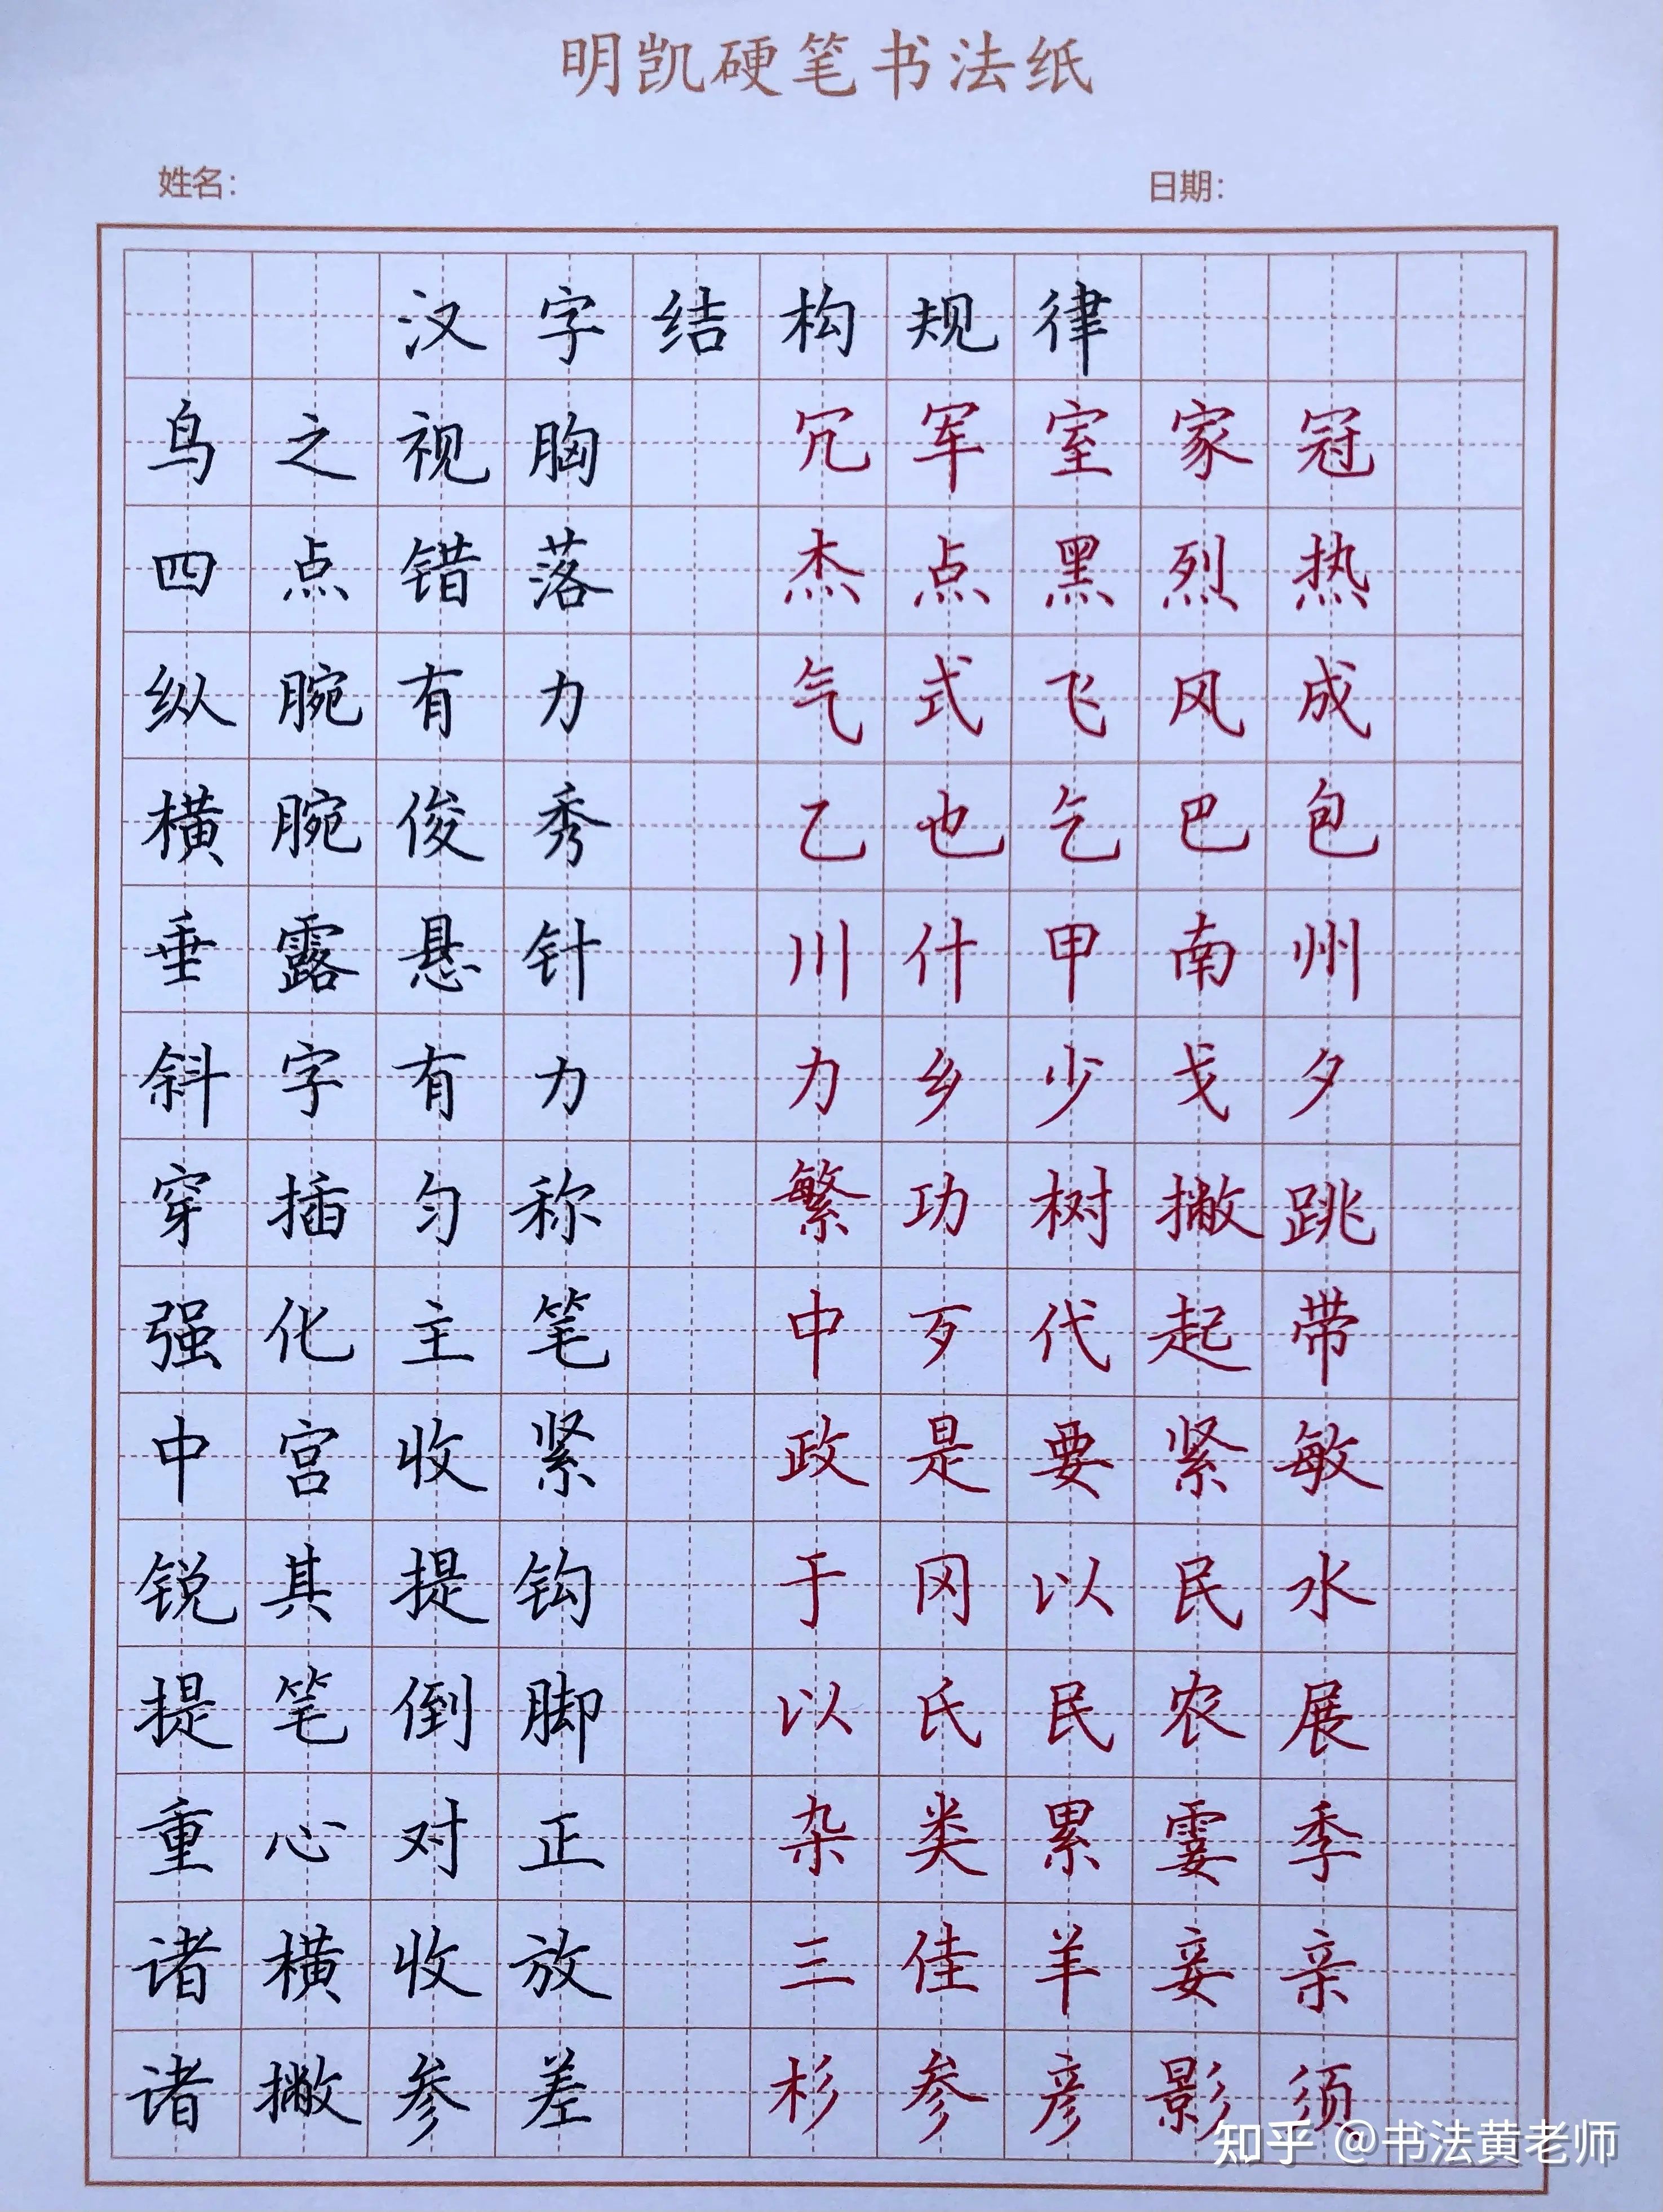 明凯硬笔书法纸
姓名： 日期：
汉字结构规律
鸟之视胸 冗军室家冠
四点错落 杰点黑烈热
纵腕有力 气式飞风成
横腕俊秀 乙也乞巴包
垂露悬针 川什甲南州
斜字有力 力乡少戈夕
穿插匀称 繁功树撇跳
强化主笔 中歹代起带
中宫收紧 政是要紧敏
锐其提钩 于冈以民水
提笔倒脚 以氏民农展
重心对正 杂类累霎季
诸横收放 三佳羊妾亲
诸撇参差 杉参彦影须
知乎 @书法黄老师